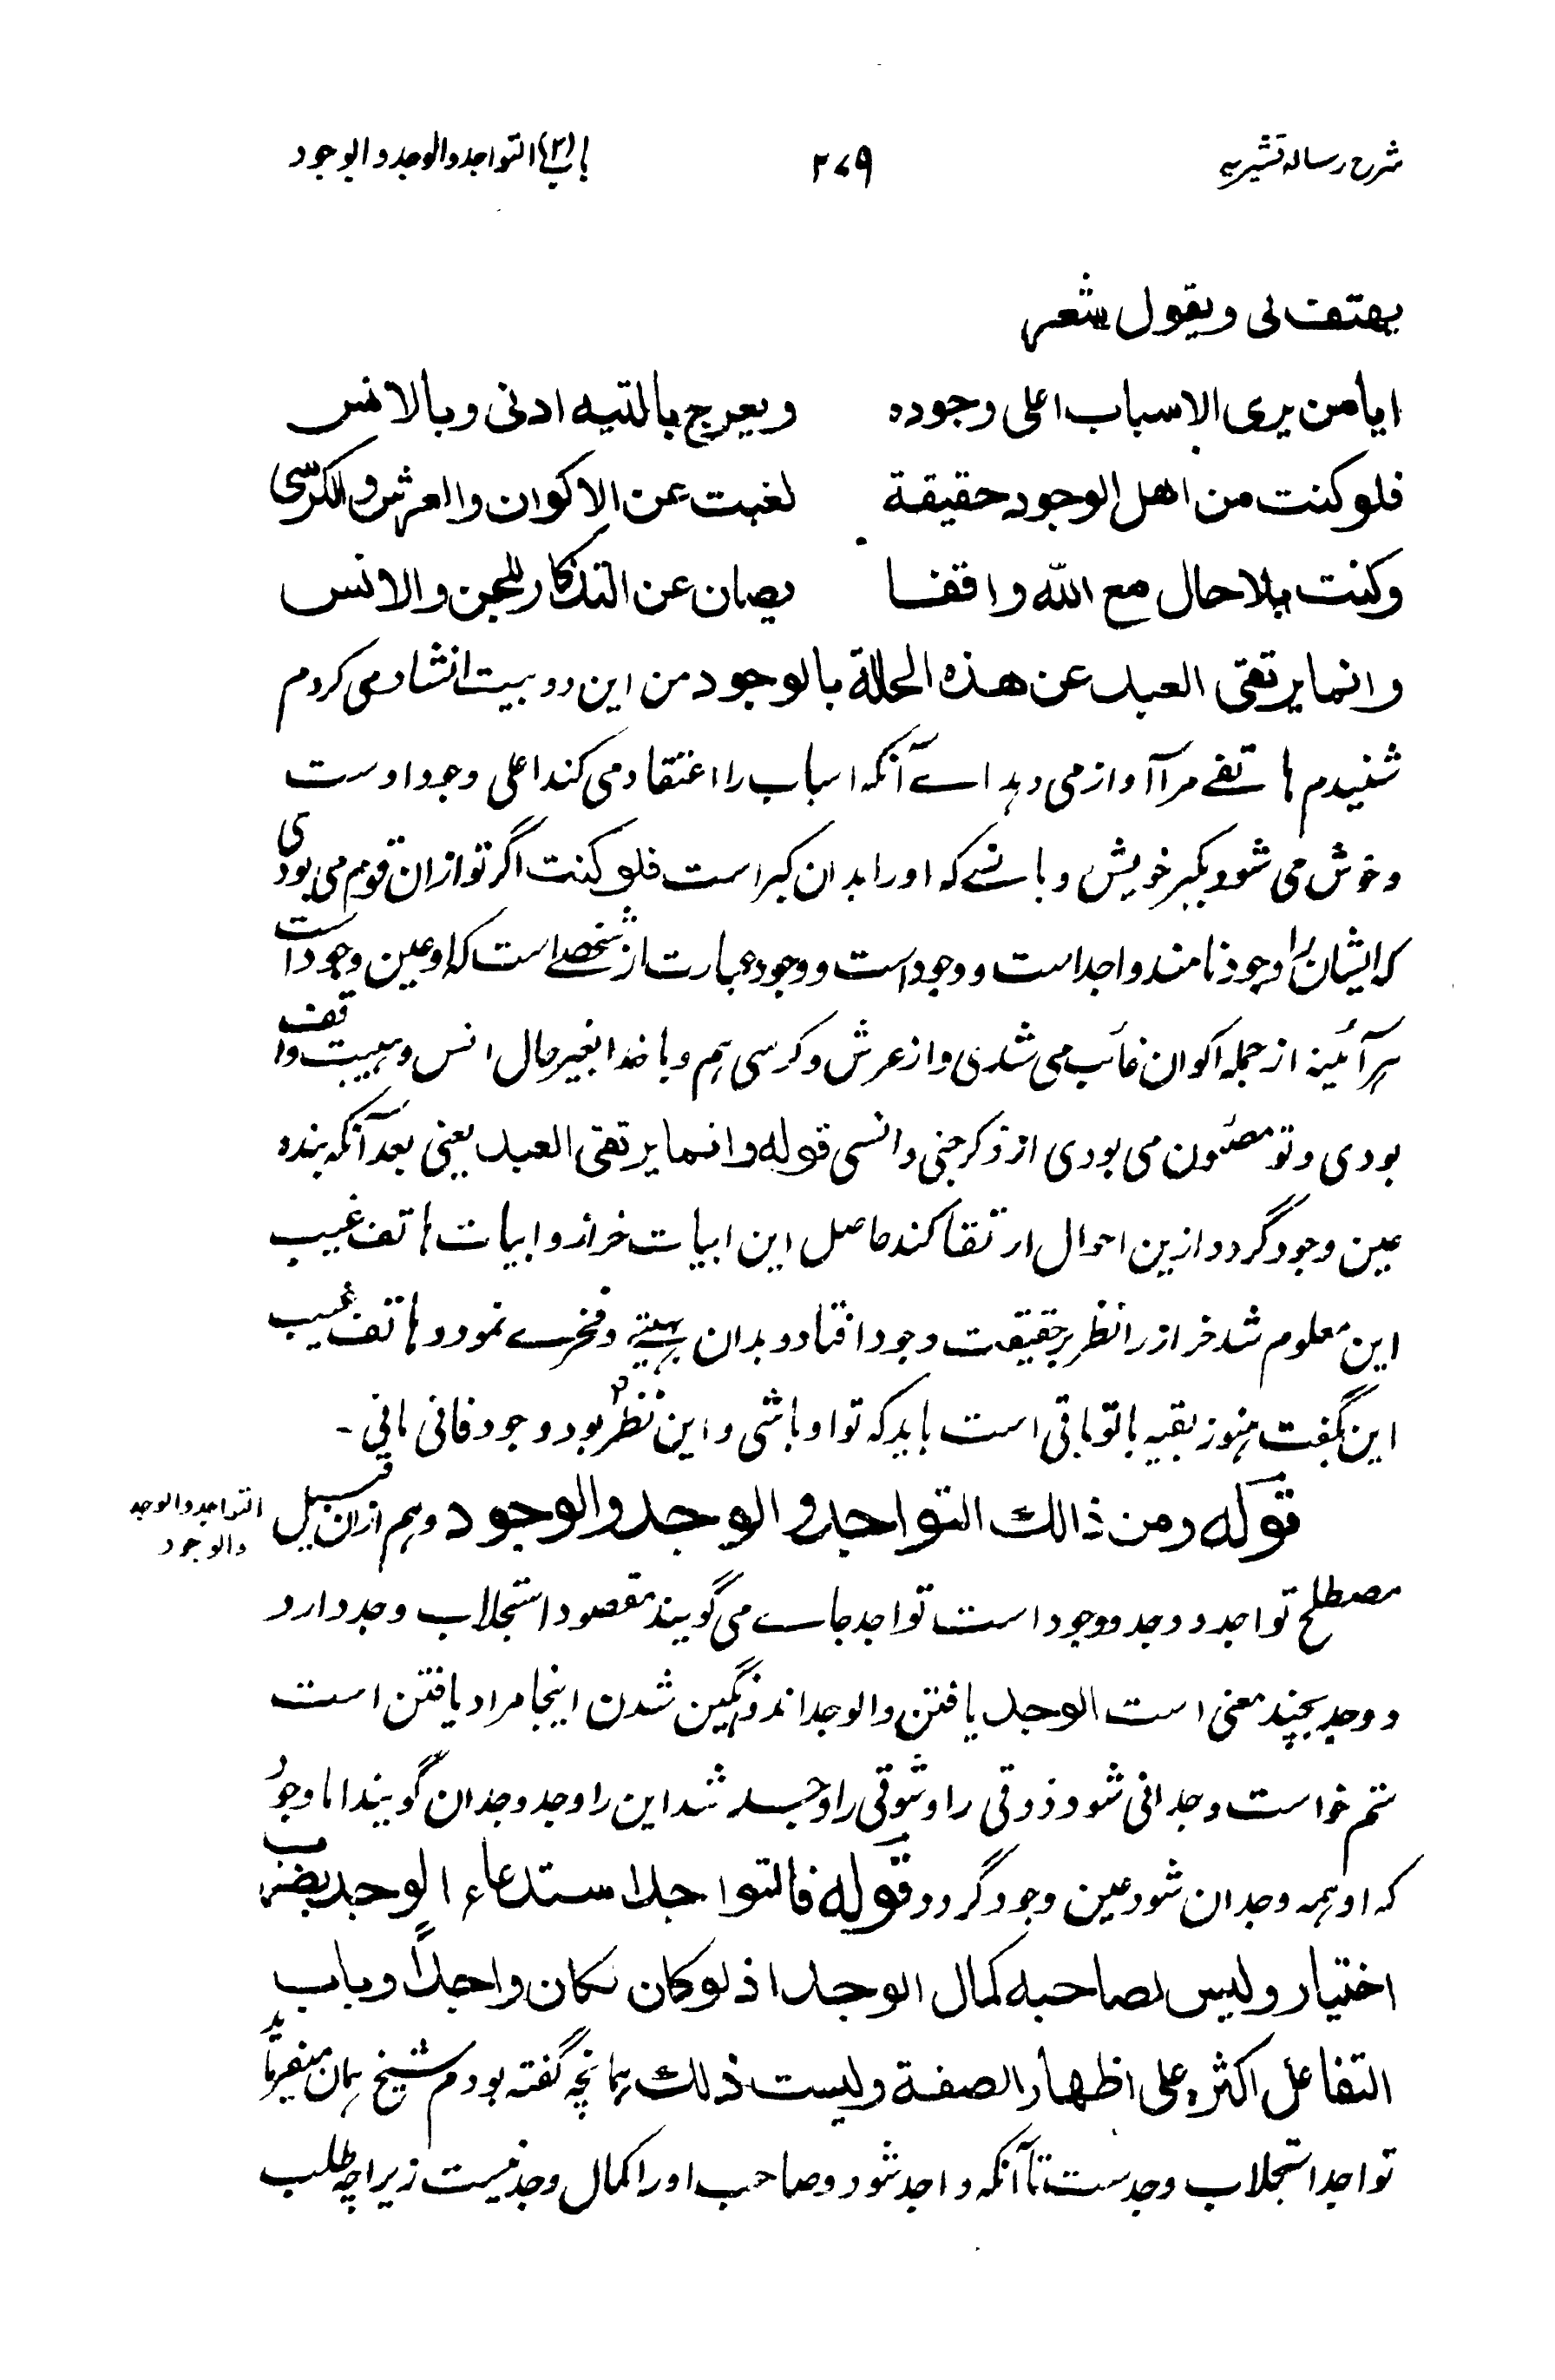 شرح رساله قشیریه
۲۷۹
باب (۲) التواجد والوجد والوجود
یهتف لی ویقول شعر
ایا من یری الاسباب اعلی وجوده ویعرج بالتیه ادنی وبالانس
فلو کنت من اهل الوجود حقیقة لغبت عن الاکوان والعرش والکرسی
وکنت بلا حال مع الله واقفا یصان عن التذکار للجن والانس
وانما یرتقی العبد عن هذه الحالة بالوجود من این دو بیت انشاد می کردم
شنیدم هاتفے مرا آواز می دهد اے آنکه اسباب را اعتقاد می کند اعلی وجود اوست
وخوش می شود بکبر خویش وبانسے که او را بدان کبر است فلو کنت اگر تو ازان قوم می بودی
که ایشان را وجود نامند واجد است ووجود است ووجود عبارت از شخصے است که او عین وجود است
هر آئینه از جمله اکوان غائب می شدی واز عرش وکرسی هم وبا خدا بغیر حال انس وهیبت واقف
بودی وتو مصئون می بودی از ذکر جنی وانسی قوله وانما یرتقی العبد یعنی بعد آنکه بنده
عین وجود گردد ازین احوال ارتقا کند حاصل این ابیات خراز وابیات هاتف غیب
این معلوم شد خراز را نظر بر حقیقت وجود افتاد وبدان بهیتے وفخرے نمود وهاتف غیب
این گفت هنوز بقیه با تو باقی است باید که تو او باشی واین نظر بود وجود فانی مانی -
قوله ومن ذالك التواجد والوجد والوجود وهم ازان قبیل
التواجد والوجد
والوجود
مصطلح تواجد ووجد ووجود است تواجد جاے می گویند مقصود استجلاب وجد دارد
ووجد بچند معنی است الوجد یافتن والوجد اندوهگین شدن اینجا مراد یافتن است
ستم خواست وجدانی شود ذوقی را وشوقی را وجد شد این را وجد وجدان گویند اما وجود
که او همه وجدان شود عین وجود گردد قوله فالتواجد استدعاء الوجد بضرب
اختیار ولیس لصاحبه کمال الوجد اذ لو کان لکان واجداً وباب
التفاعل اکثره علی اظهار الصفة ولیست ذلك همانچه گفته بودم شیخ همان میفرماید
تواجد استجلاب وجدست تا آنکه واجد شود وصاحب او را کمال وجد نیست زیراچه طلب